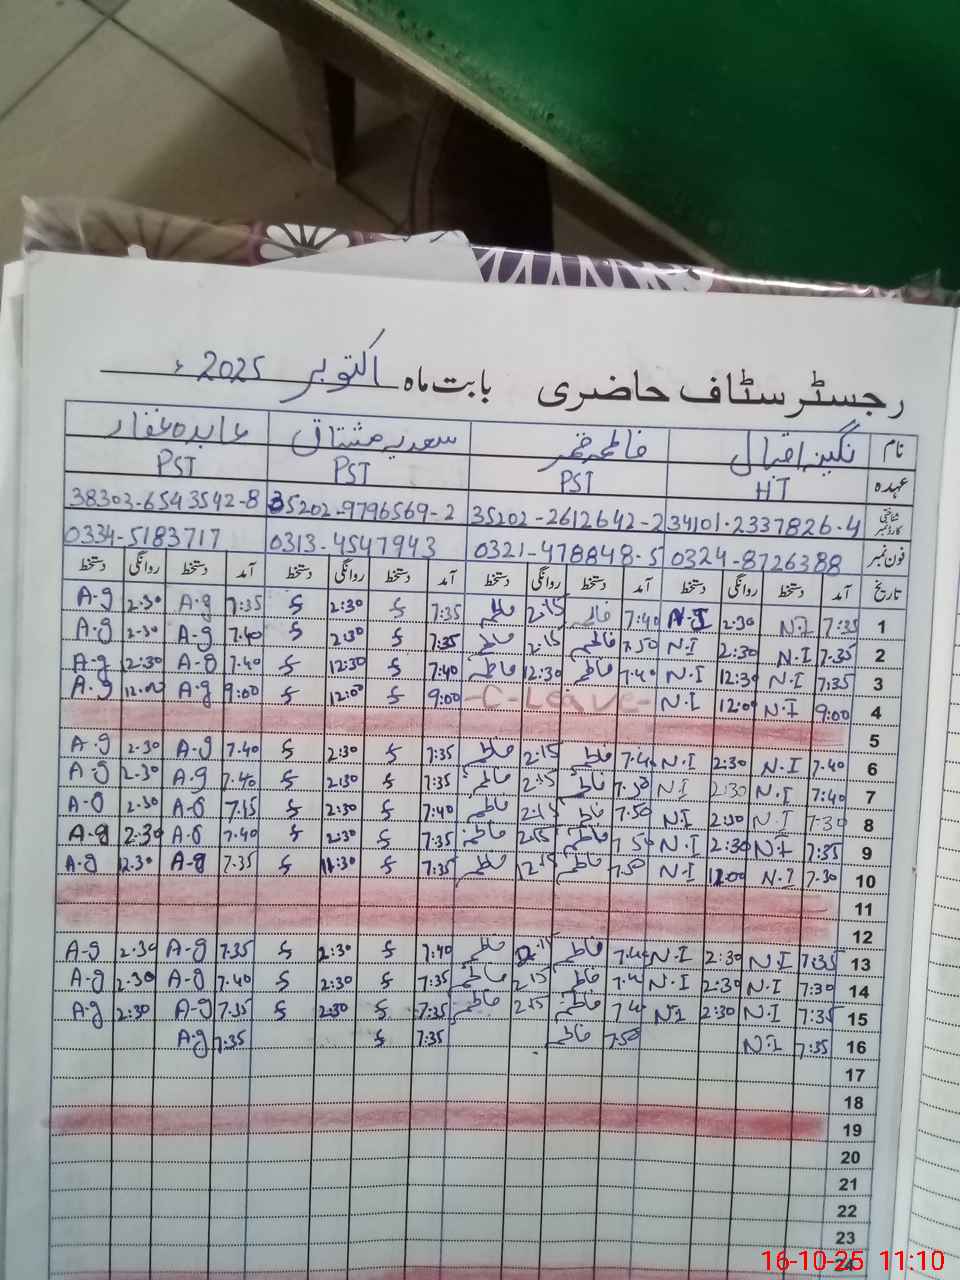 رجسٹر سٹاف حاضری بابت ماہ اکتوبر 2025ء
نام نگین اقبال فاطمہ قمر سعدیہ مشتاق عابدہ غفار
عہدہ HT PST PST PST
شناختی کارڈ نمبر 34101-2337826-4 35202-2612642-2 35202-9796569-2 38303-6543542-8
فون نمبر 0324-8726388 0321-478848-5 0313-4547943 0334-5183717
تاریخ آمد دستخط روانگی دستخط آمد دستخط روانگی دستخط آمد دستخط روانگی دستخط آمد دستخط روانگی دستخط
1 7:35 N.I 2:30 N.I 7:40 فاطمہ 2:15 فاطمہ 7:35 2:30 7:35 A-g 2:30 A-g
2 7:35 N.I 2:30 N.I 7:50 فاطمہ 2:15 فاطمہ 7:35 2:30 7:40 A-g 2:30 A-g
3 7:35 N.I 12:30 N.I 7:40 فاطمہ 12:30 فاطمہ 7:40 12:30 7:40 A-g 12:30 A-g
4 9:00 N.I 12:00 N.I -C-Leave- 9:00 12:00 9:00 A-g 12:00 A-g
5
6 7:40 N.I 2:30 N.I 7:40 فاطمہ 2:15 فاطمہ 7:35 2:30 7:40 A-g 2:30 A-g
7 7:40 N.I 2:30 N.I 7:50 فاطمہ 2:15 فاطمہ 7:35 2:30 7:40 A-g 2:30 A-g
8 7:30 N.I 2:30 N.I 7:50 فاطمہ 2:15 فاطمہ 7:40 2:30 7:15 A-g 2:30 A-g
9 7:35 N.I 2:30 N.I 7:50 فاطمہ 2:15 فاطمہ 7:35 2:30 7:40 A-g 2:30 A-g
10 7:30 N.I 12:00 N.I 7:50 فاطمہ 12:15 فاطمہ 7:35 11:30 7:35 A-g 12:30 A-g
11
12
13 7:35 N.I 2:30 N.I 7:40 فاطمہ 2:15 فاطمہ 7:40 2:30 7:35 A-g 2:30 A-g
14 7:30 N.I 2:30 N.I 7:4 فاطمہ 2:15 فاطمہ 7:35 2:30 7:40 A-g 2:30 A-g
15 7:35 N.I 2:30 N.I 7:40 فاطمہ 2:15 فاطمہ 7:35 2:30 7:35 A-g 2:30 A-g
16 7:35 N.I 7:50 فاطمہ 7:35 7:35 A-g
17
18
19
20
21
22
23
24
16-10-25 11:10